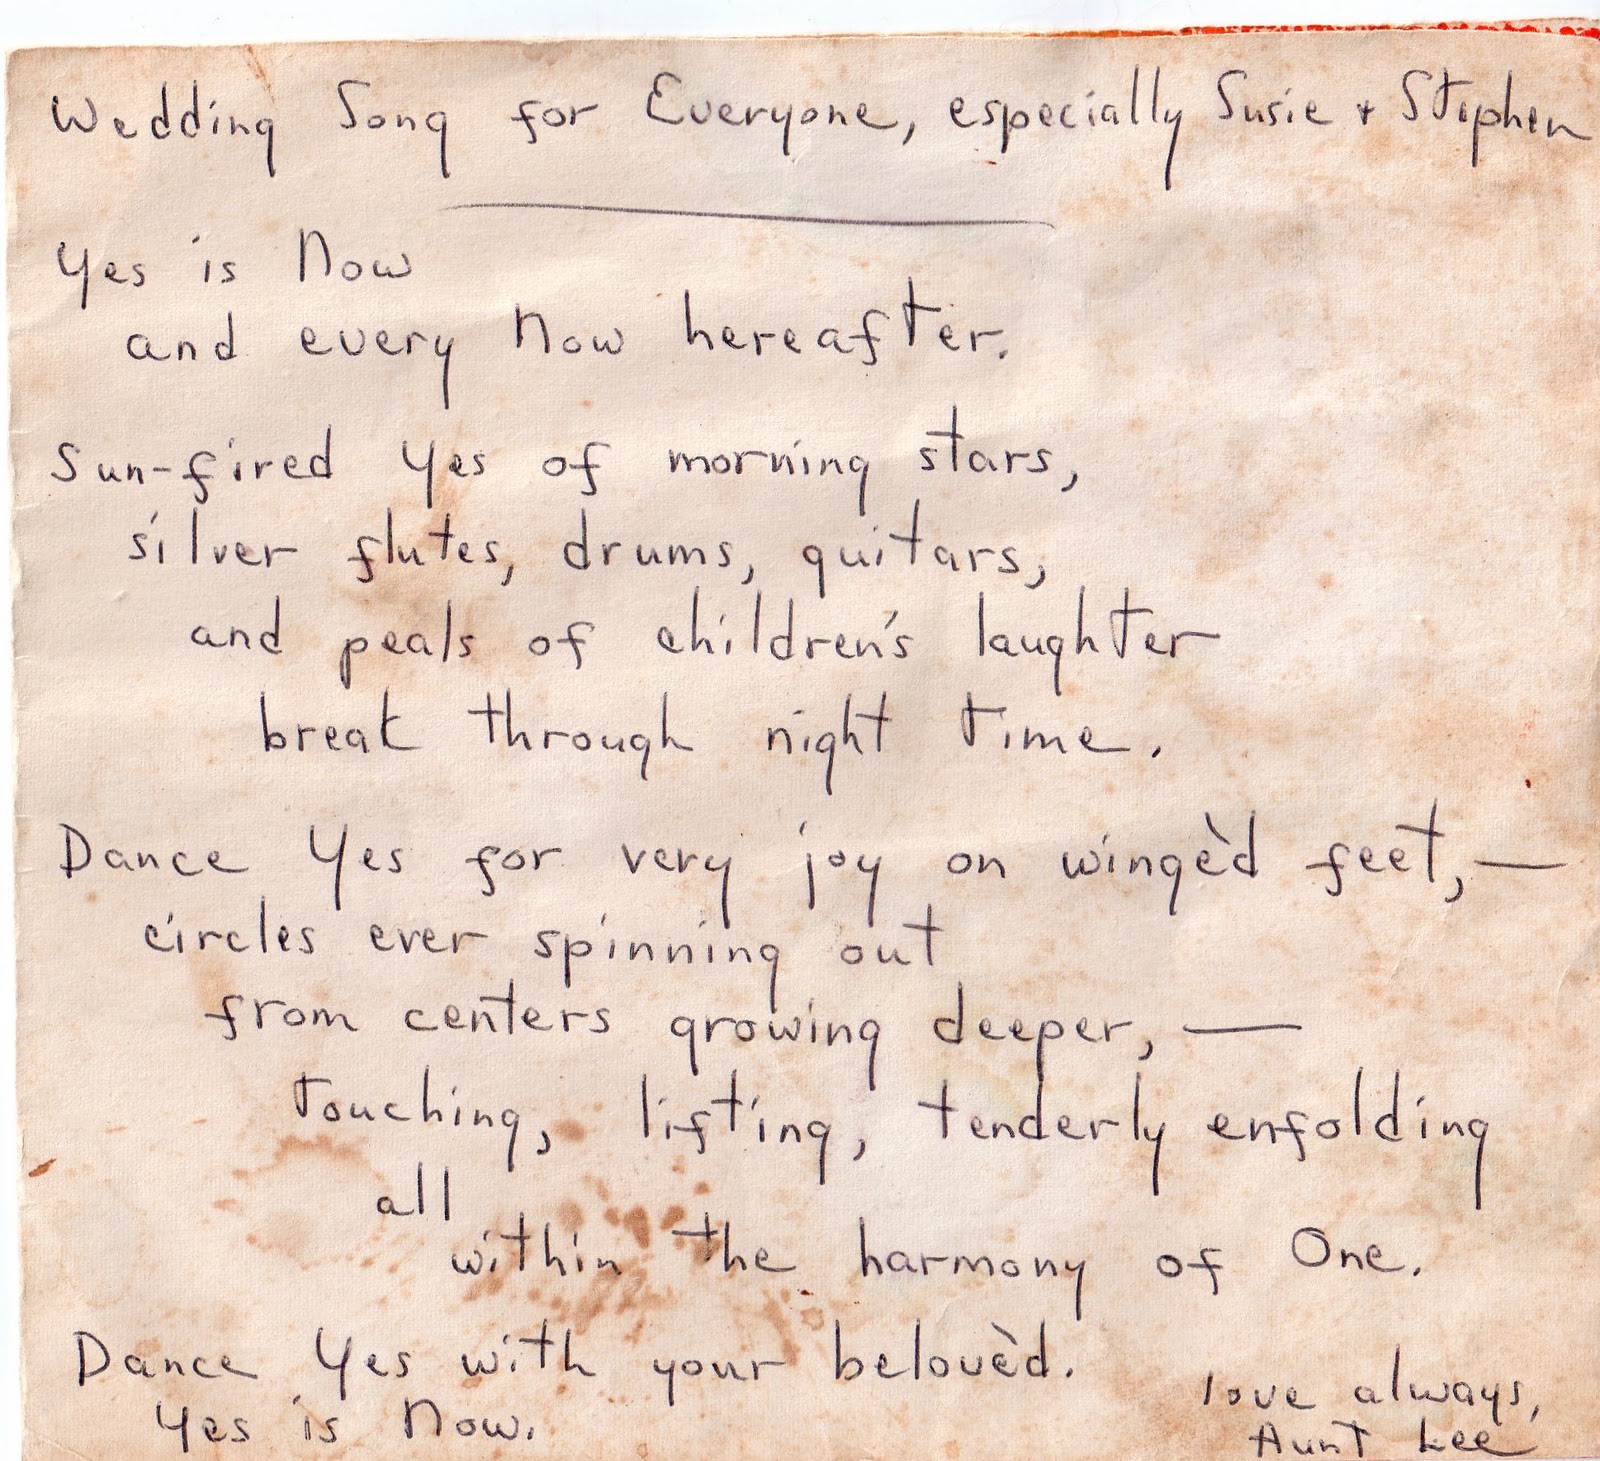 Wedding Song for Everyone, especially Susie + Stephen
Yes is Now
and every Now hereafter.
Sun-fired Yes of morning stars,
silver flutes, drums, guitars,
and peals of children's laughter
break through night time.
Dance Yes for very joy on wingèd feet,—
circles ever spinning out
from centers growing deeper,—
touching, lifting, tenderly enfolding
all
within the harmony of One.
Dance Yes with your belovèd.
Yes is Now.
love always,
Aunt Lee